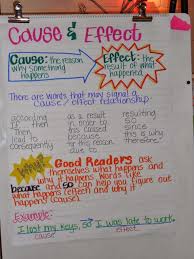 Cause & Effect
Cause: the reason why something happens
Effect: the result of what happened
There are words that may signal a
cause / effect relationship:
according as a result resulting
if then in order to so
then is caused since
lead to because therefore
consequently for this reason
due to
Good Readers ask
themselves what happens and
why it happens. Words like
because and so can help you figure out
what happens (effect) and why it
happens (cause).
Example:
I lost my keys, so I was late to work.
cause effect